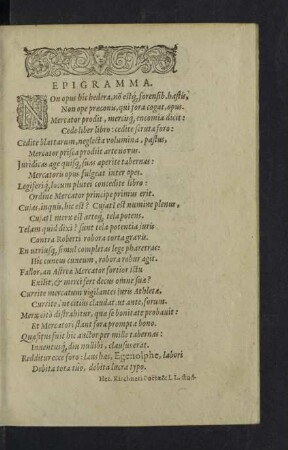 EPIGRAMMA.
NOn opus hîc hedera, nõ estq́; forensib. hastis,
Non ope præconũ, qui fora cogat, opus.
Mercator prodit, merciq́; encomia dicit:
Cedo liber libro: cedite scruta foro:
Cedite blattarum, neglecta volumina, pastus,
Mercator prisca prodiit arte novus.
Juridicas age quisq́; suas aperite tabernas:
Mercatoru opus fulgeat inter opes.
Legiferiq́; locum plutei concedite libro:
Ordine Mercator principe primus erit.
Cujas inquis, hic est? Cujas! est numine plenus,
Cujas! merx est artoq́; tela potens.
Telam quid dixi? sunt tela potentia juris
Contra Roberti robora torta gravit.
En utriusq́; simul completas lege pharetras:
His cuneus cuneum, robora robur agit.
Fallor, an Astræa Mercator fortior ictu
Exilit, & merci fert decus omne suæ?
Currite mercatum vigilantes juris athletæ,
Currite, ne citius claudat, ut ante, forum.
Merx citò distrahitur, quæ se bonitate probavit:
Et Mercatori stant fora prompta bono.
Quæsitus fuit hic auctor per mille tabernas:
Inventusq́; diu nullibi, clausus erat.
Redditur ecce foro: laus hæc, Egenolphe, labori
Debita tota tuo, debita lucra typo.
Her. Kirchneri Poëtæ & I. L. stud.